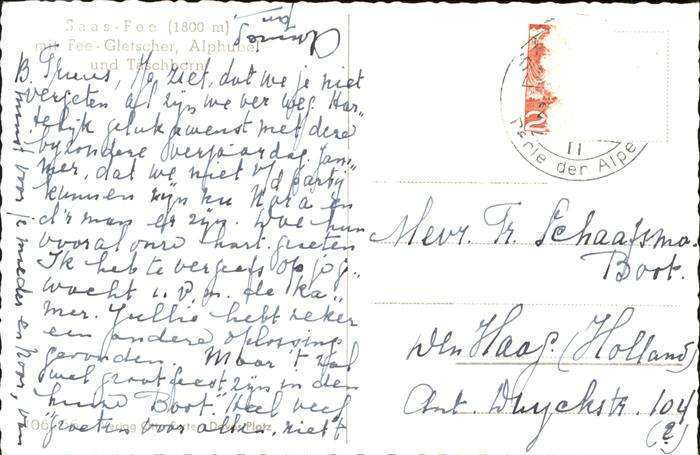 Saas-Fee (1800 m)
mit Fee-Gletscher, Alphubel
und Täschhorn
B. Truus, Je ziet, dat we je niet
vergeten al zijn we ver weg. Har-
telijk geluk gewenst met deze
bijzondere verjaardag. Jam-
mer, dat we niet op d partij
kunnen zijn nu Nora en
d'r man er zijn. Doe hun
vooral onze hart. groeten
Ik heb te vergeefs op je ge-
wacht i. d. de ka-
mer. Jullie hebt zeker
een andere oplossing
gevonden. Maar 't zal
wel groot feest zijn in den
huize Boot. Veel veel
groeten voor allen, niet 't
minst voor je moeder en Koos, van
an
Perle der Alpe
II
Mevr. Tr. Schaafsma-
Boot.
den Haag. (Holland)
Ant. Duyckstr. 104
(?)
106
Platz